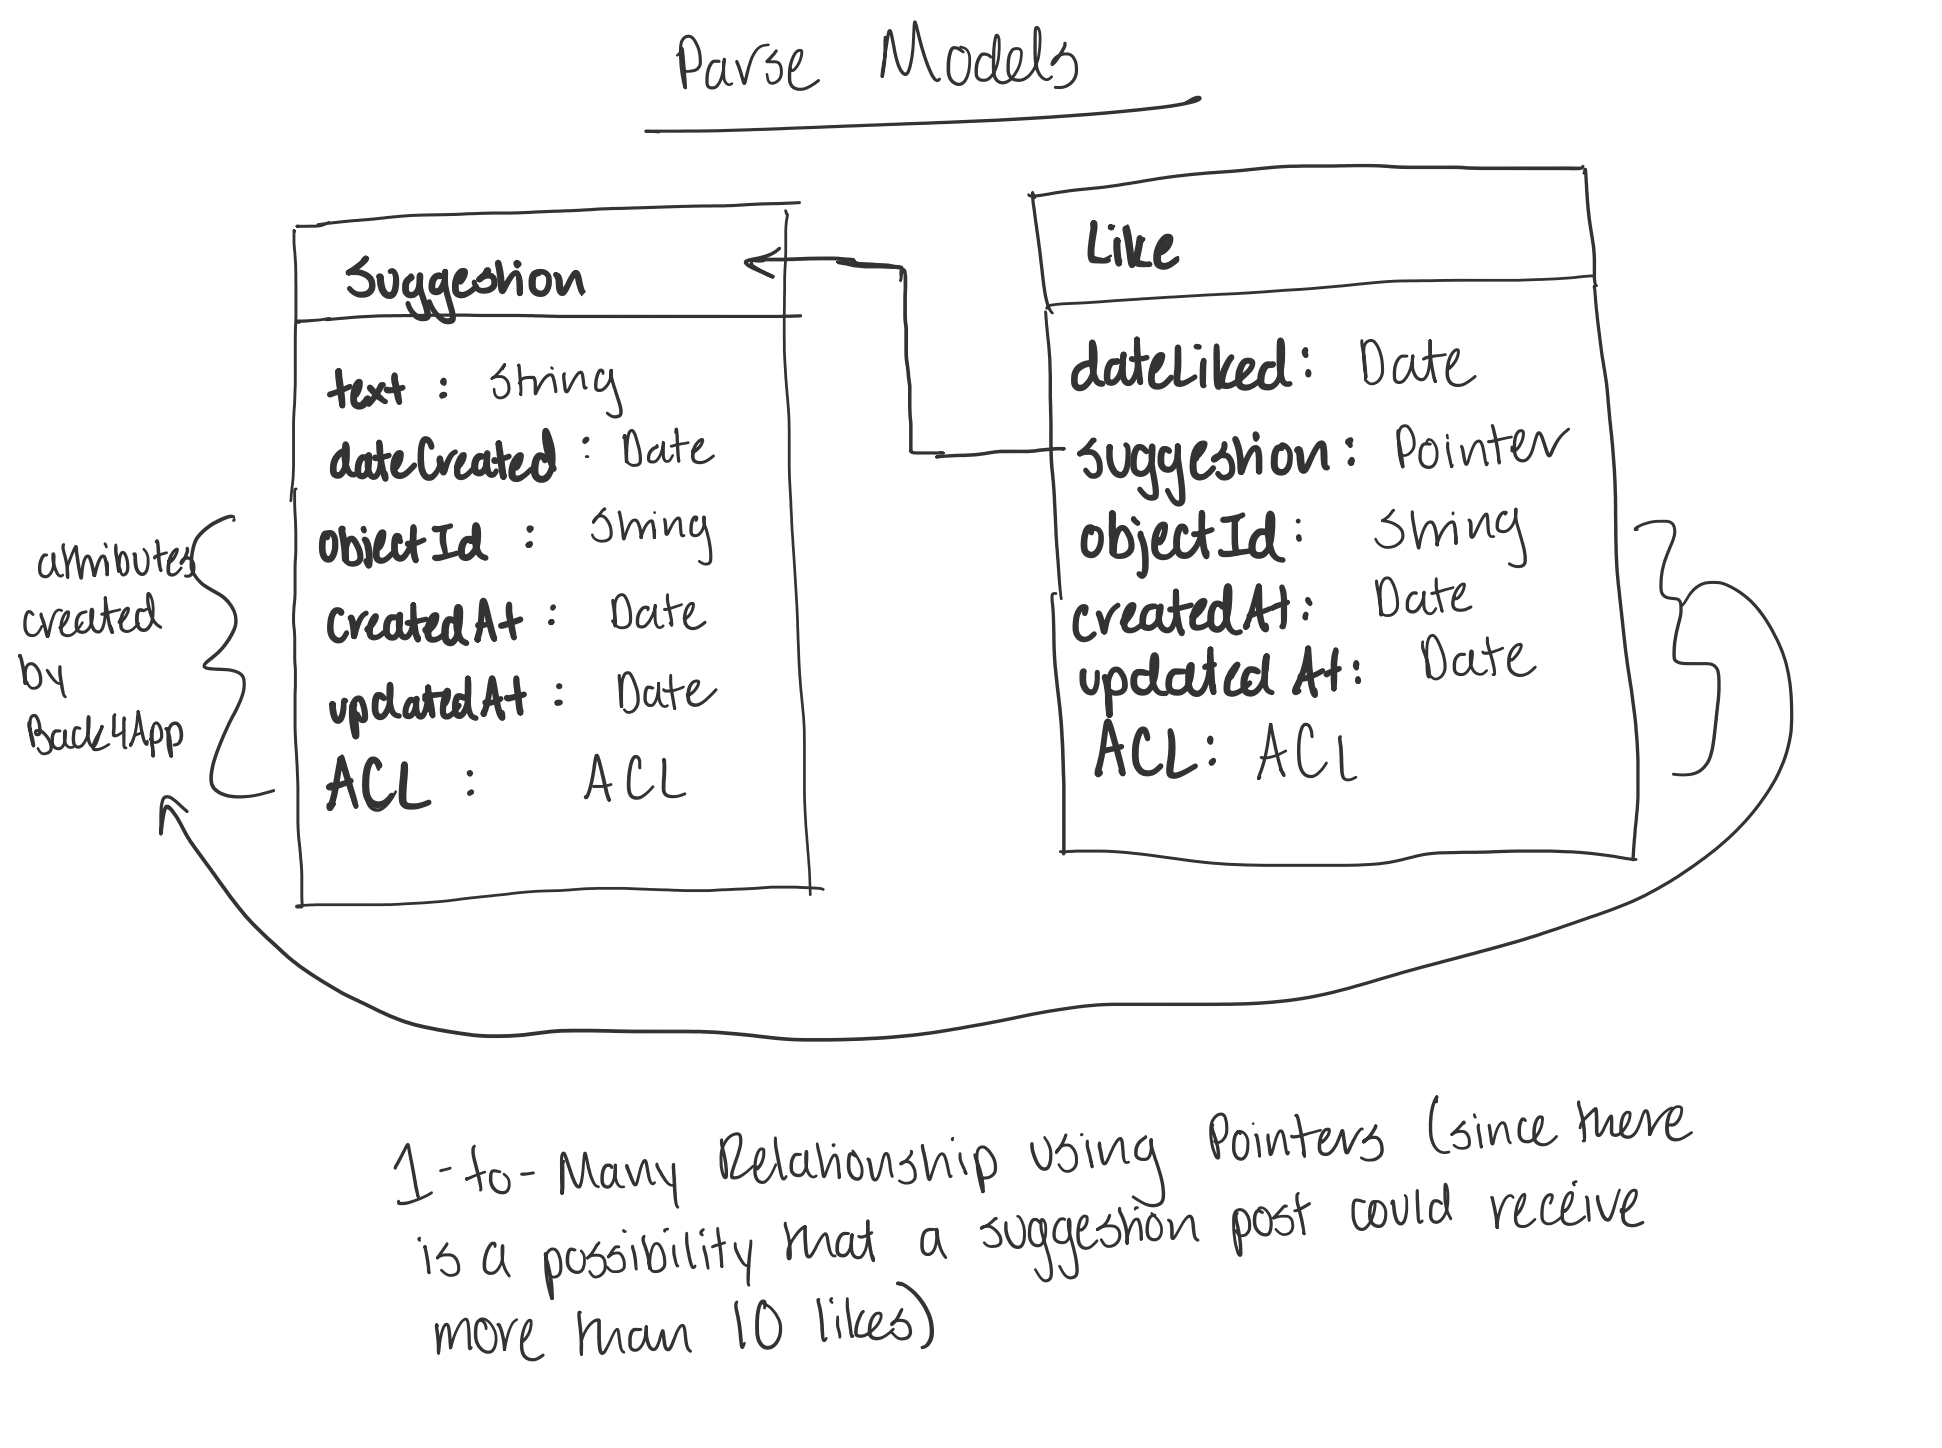 Parse Models
Suggestion
text : String
dateCreated : Date
objectId : String
createdAt : Date
updatedAt : Date
ACL : ACL
Like
dateLiked : Date
suggestion : Pointer
objectId : String
createdAt : Date
updatedAt : Date
ACL : ACL
attributes
created
by
Back4App
1-to-Many Relationship using Pointers (since there
is a possibility that a suggestion post could receive
more than 10 likes)